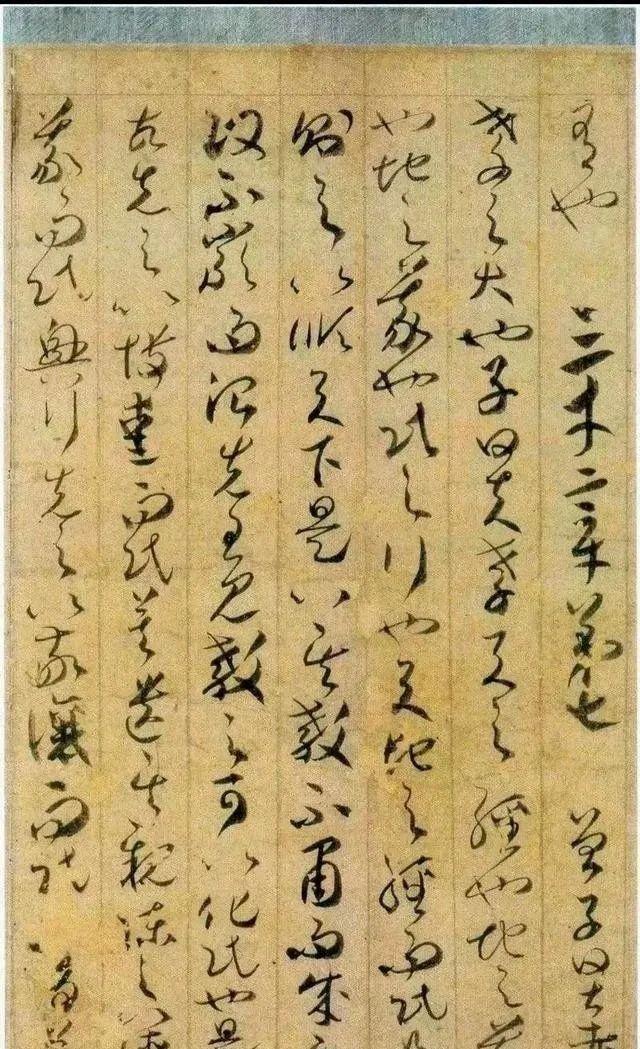 有也 三才章第七 曾子曰甚哉
孝之大也子曰夫孝天之經也地之義
也地之義也民之行也天地之經而民
則之以順天下是以其教不肅而成
政不嚴而治先王見教之可以化民也是
故先之以博愛而民莫遺其親陳之以
義而民興行先之以敬讓而民